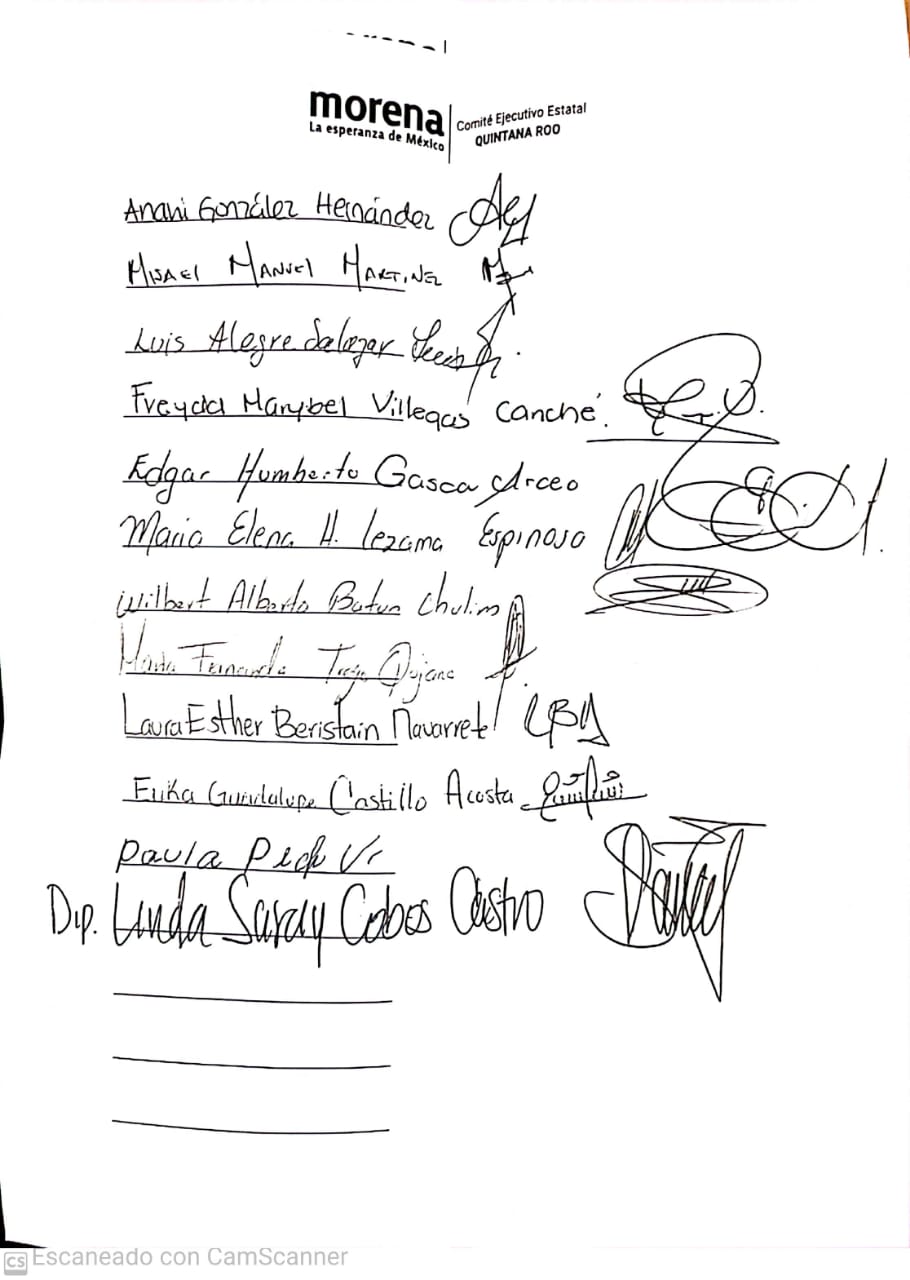 morena
La esperanza de México
Comité Ejecutivo Estatal
QUINTANA ROO
Anahi González Hernández
MISAEL MANUEL MARTINEZ
Luis Alegre Salazar
Freyda Marybel Villegas Canché.
Edgar Humberto Gasca Arceo
Maria Elena H. Lezama Espinosa
Wilbert Alberto Batun Chulim
Maria Fernanda Trejo Quijano
Laura Esther Beristain Navarrete
Erika Guadalupe Castillo Acosta
Paula Pech
Dip. Linda Saray Cobos Castro
CS Escaneado con CamScanner